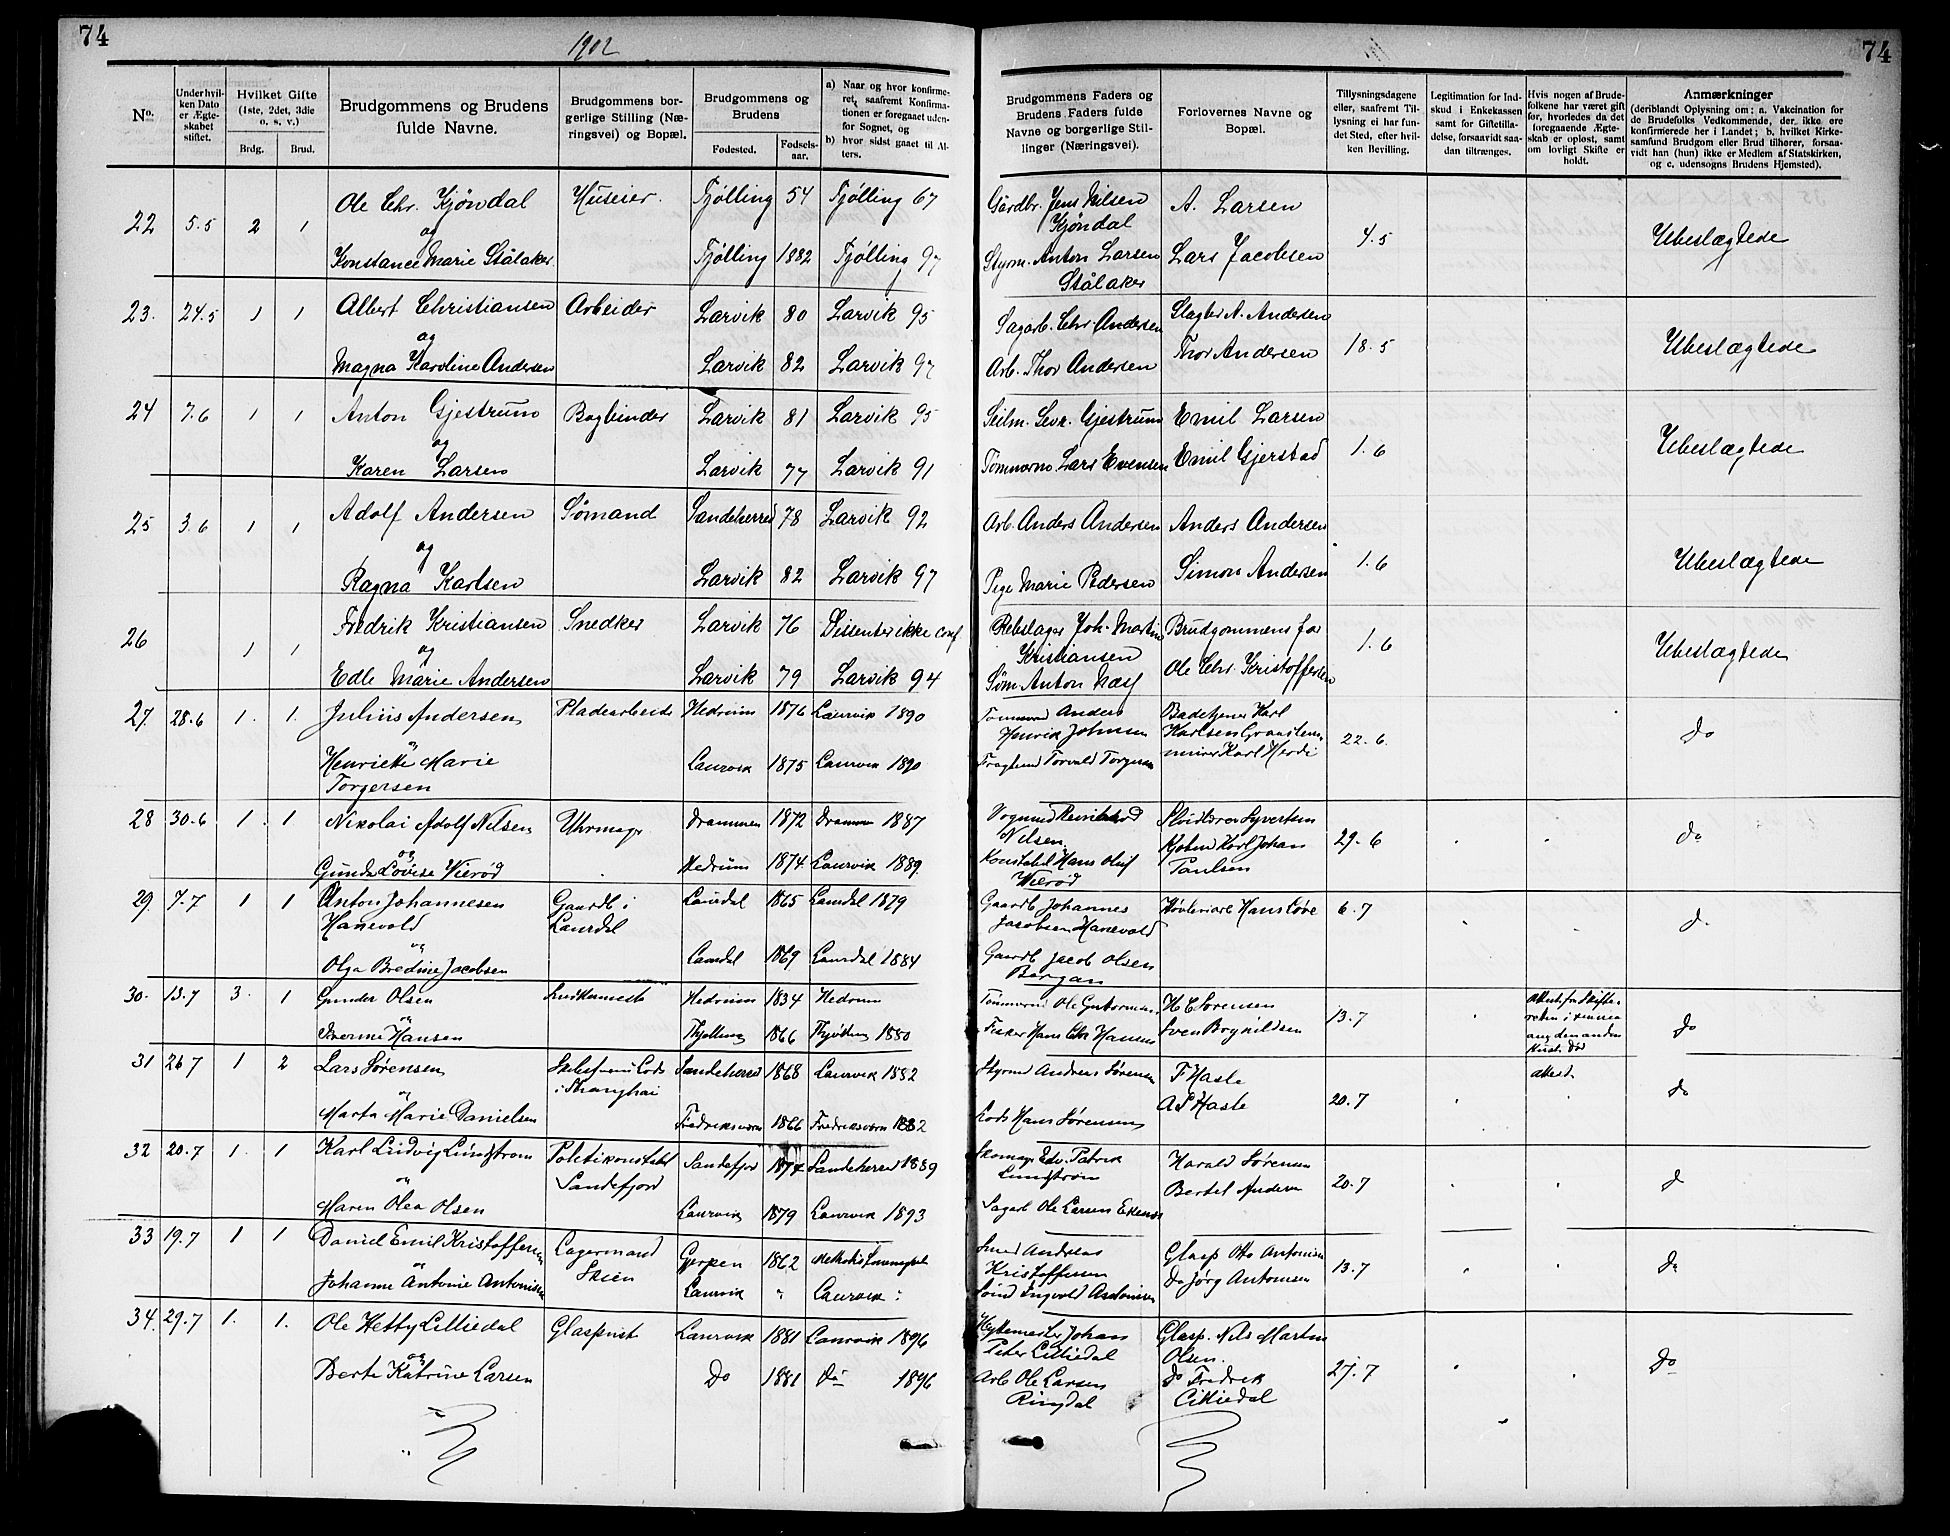 74
1902
74
No.
Under hvil-
ken Dato
er Ægte-
skabet
stiftet.
Hvilket Gifte
(1ste, 2det, 3die
o. s. v.)
Brdg.
Brud.
Brudgommens og Brudens
fulde Navne.
Brudgommens bor-
gerlige Stilling (Næ-
ringsvei) og Bopæl.
Brudgommens og
Brudens
Fødested.
Fødsels-
aar.
a) Naar og hvor konfirme-
ret, saafremt Konfirma-
tionen er foregaaet uden-
for Sognet, og
b) hvor sidst gaaet til Al-
ters.
Brudgommens Faders og
Brudens Faders fulde
Navne og borgerlige Stil-
linger (Næringsvei).
Forlovernes Navne og
Bopæl.
Tillysningsdagene
eller, saafremt Til-
lysning ei har fun-
det Sted, efter hvil-
ken Bevilling.
Legitimation for Ind-
skud i Enkekassen
samt for Giftetilla-
delse, forsaavidt saa-
dan tiltrænges.
Hvis nogen af Brude-
folkene har været gift
før, hvorledes da det
foregaaende Ægte-
skab er opløst, samt
om lovligt Skifte er
holdt.
Anmærkninger
(deriblandt Oplysning om; a. Vakcination for
de Brudefolks Vedkommende, der ikke ere
konfirmerede her i Landet; b. hvilket Kirke-
samfund Brudgom eller Brud tilhører, forsaa-
vidt han (hun) ikke er Medlem af Statskirken,
og c. udensogns Brudens Hjemsted).
22 5.5 2 1 Ole Chr. Kjøndal Huseier. Tjølling 54 Tjølling 67 Gårdbr. Jens Nilsen Kjøndal A. Larsen 4.5 Ubeslægtede
og
Konstance Marie Stålaker Tjølling 1882 Tjølling 97 Styrm. Anton Larsen Stålaker Lars Jacobsen
23. 24.5 1 1 Albert Christiansen Arbeider Larvik 80 Larvik 95 Sagarb. Chr. Andersen Slagter A. Andersen 18.5 Ubeslægtede
og
Magna Karoline Andersen Larvik 82 Larvik 97 Arb. Thor Andersen Thor Andersen
24 7.6 1 1 Anton Gjestrum Bogbinder Larvik 81 Larvik 95 Seilm. Sevr. Gjestrum Emil Larsen 1.6 Ubeslægtede
og
Karen Larsen Larvik 77 Larvik 91 Tømmerm Lars Evensen Emil Gjerstad
25 3.6 1 1 Adolf Andersen Sømand Sandeherred 78 Larvik 92 Arb. Anders Andersen Anders Andersen 1.6 Ubeslægtede
og
Ragna Karlsen Larvik 82 Larvik 97 Pige Marie Pedersen Simon Andersen
26 1 1 Fredrik Kristiansen Snedker Larvik 76 Dissenter ikke conf Rebslager Joh. Martin Kristiansen Brudgommens far 1.6 Ubeslægtede
og
Edle Marie Andersen Larvik 79 Larvik 94 Søm. Anton Næss Ole Chr. Kristoffersen
27. 28.6 1. 1. Julius Andersen Pladearbeide Hedrum 1876 Laurvik 1890 Anders Henrik Johnsen Karl Karlsen 22.6. Do
og
Henrikke Marie Torgersen Laurvik 1875 Laurvik 1890 Torvald Torgersen Karl
28 30.6 1. 1 Nikolai Adolf Nilsen Uhrmagr Drammen 1872 Drammen 1887 Nilsen Syvertsen 29.6 Do
og
Gunda Lovise Wierød Hedrum 1874 Laurvik 1889. Konstabel Hans Oluf Wierød Karl Johan Paulsen
29. 7.7 1 1 Anton Johannesen Hanevold Gaardb i Laurdal Laurdal 1865 Laurdal 1879 Gaardb Johannes Jacobsen Hanevold Hans Løve 6.7 Do
og
Olga Bredine Jacobsen Laurdal 1869 Laurdal 1884 Gaardb Jacob Olsen Bergan
30. 13.7 3. 1 Gunder Olsen Hedrum 1834 Hedrum Ole H C Sørensen 13.7 Do
og
Hansen Tjølling 1866 Tjølling 1880 Fisker Hans Chr Hansen Sven
31 26.7 1 2 Lars Sørensen i Shanghai Sandeherred 1868 Laurvik 1882 Styrmd Andreas Sørensen F Hasle 20.7 attest. Do
og
Marta Marie Danielsen Fredriksværn 1866 Fredriksværn 1882 Lods Hans Sørensen Hasle
32 20.7 1. 1 Karl Ludvig Lundstrøm Politikonstabel Sandefjord Sandefjor 1874 Sandeherred 1889 Skomagr Edv. Patrik Lundstrøm Harald Sørensen 20.7 Do
og
Maren Olea Olsen Laurvik 1879 Laurvik 1893 Sagarb Ole Larsen Bertel Andersen
33 19.7 1 1 Daniel Emil Kristoffersen Lagermand Skien Gjerpen 1862 Smed Andreas Kristoffersen Glasp Otto Antonisen 13.7 Do
og
Johanne Antonie Antonisen Laurvik " Laurvik " Ingvald Antonisen Do Jørg Antonsen
34. 29.7 1. 1. Ole Hetty Lilliedal Glaspust Laurvik 1881 Laurvik 1896 Hyttemester Johan Peter Lilliedal Glasp. Nils Martin Olsen. 27.7 Do
og
Berte Katrine Larsen Do 1881 Do 1896 Arb Ole Larsen Ringdal Do Fredrik Lilliedal